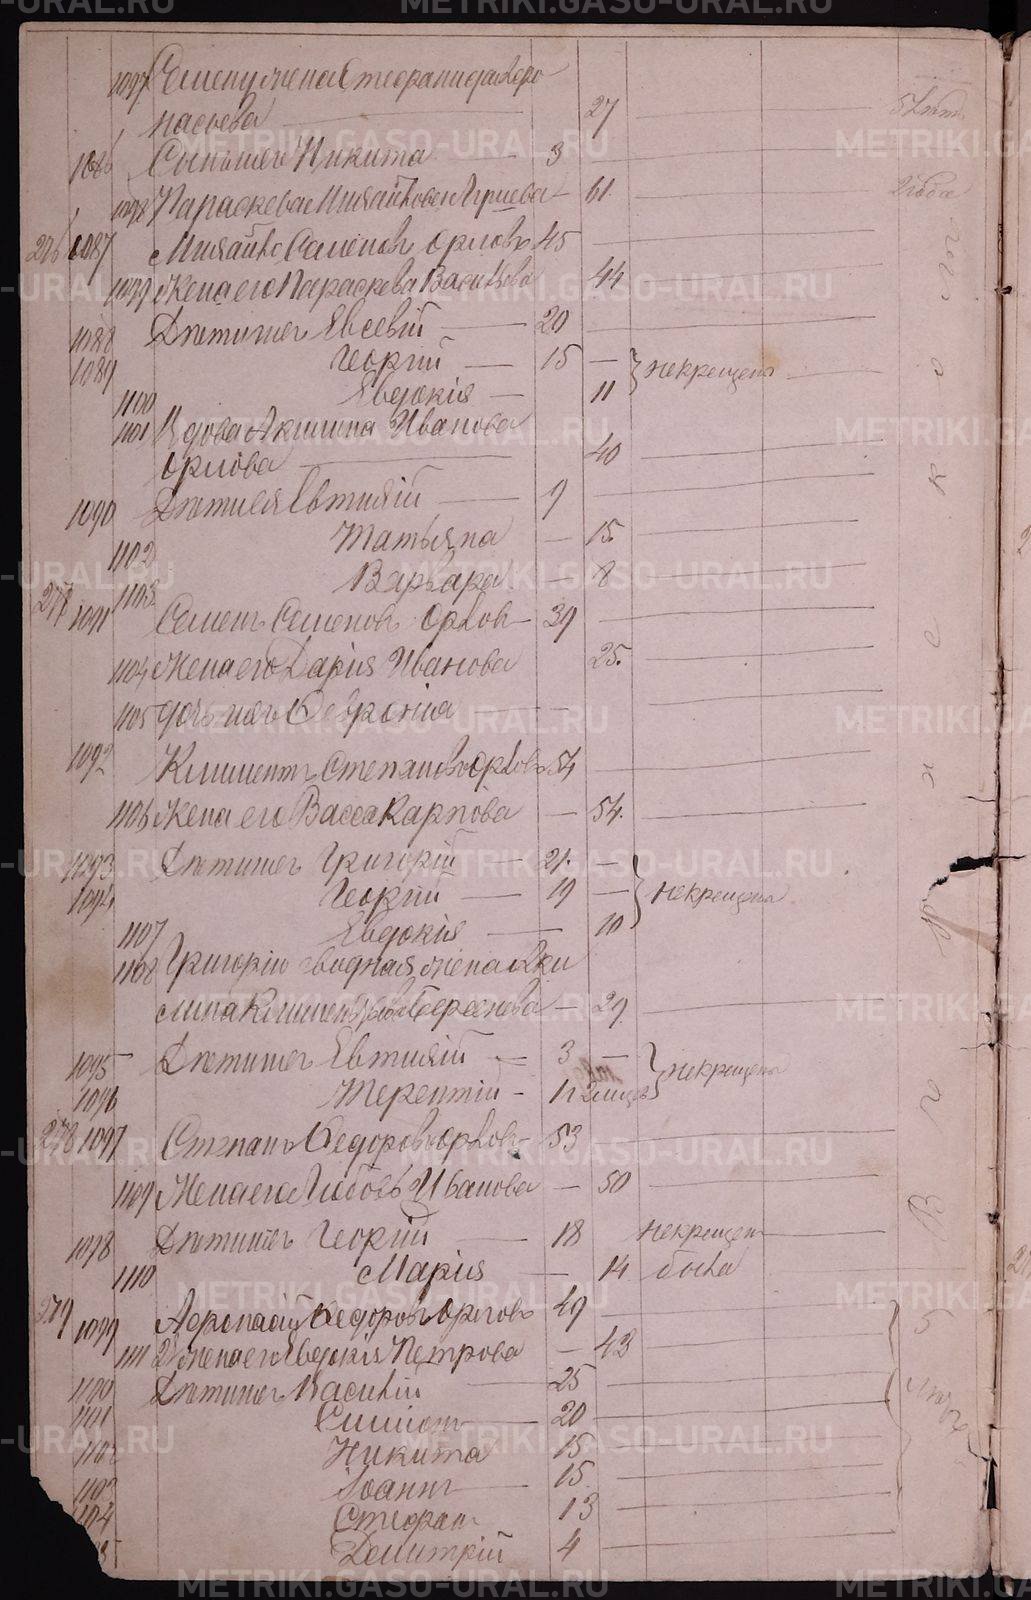 1097 Семену жена Стефанида Афо
насьева 27
1086 Сынъ его Никита 3
1098 Параскева Михайлова 61.
276 1087 Михайлъ Семеновъ Орловъ 45
1099 Жена его Параскева Васильева 44
1088 Дети ихъ Евсевій 20
1089 Георгій 15 — некрещены
1100 Евдокія — 11
1101 Вдова Акилина Иванова
Орлова 40
1090 Дети ея Евтихій 9
1102 Татьяна — 15.
1103 Варвара — 8
277 1091 Семенъ Семеновъ Орловъ 39
1104 Жена его Дарія Иванова 25.
1105 дочь ихъ Феврония —
1092 Климентъ Степановъ Орловъ 54
1106 Жена его Васса Карпова — 54.
1093 Дети ихъ Григорій 21. —
1094 Георгій 19 — некрещены
1107 Евдокія — 10
1108 Григорію сводная жена Аки
лина Климентьева — 29
1095 Дети ихъ Евтихій — 3 —
1096 Терентій - некрещены
278 1097 Степанъ Федоровъ Орловъ 53
1109 Жена его Любовь Иванова — 50
1098 Дети ихъ Георгій — 18 некрещен
1110 Марія — 14 была
279 1099 Федоровъ Орловъ 49
1111 2я жена его Евдокія Петрова — 43
1100 Дети ихъ Василій 25
1101 Симеонъ 20
1102 Никита 15
1103 Іоаннъ 15
1104 Стефанъ 13
Димитрій 4
METRIKI.GASO-URAL.RU